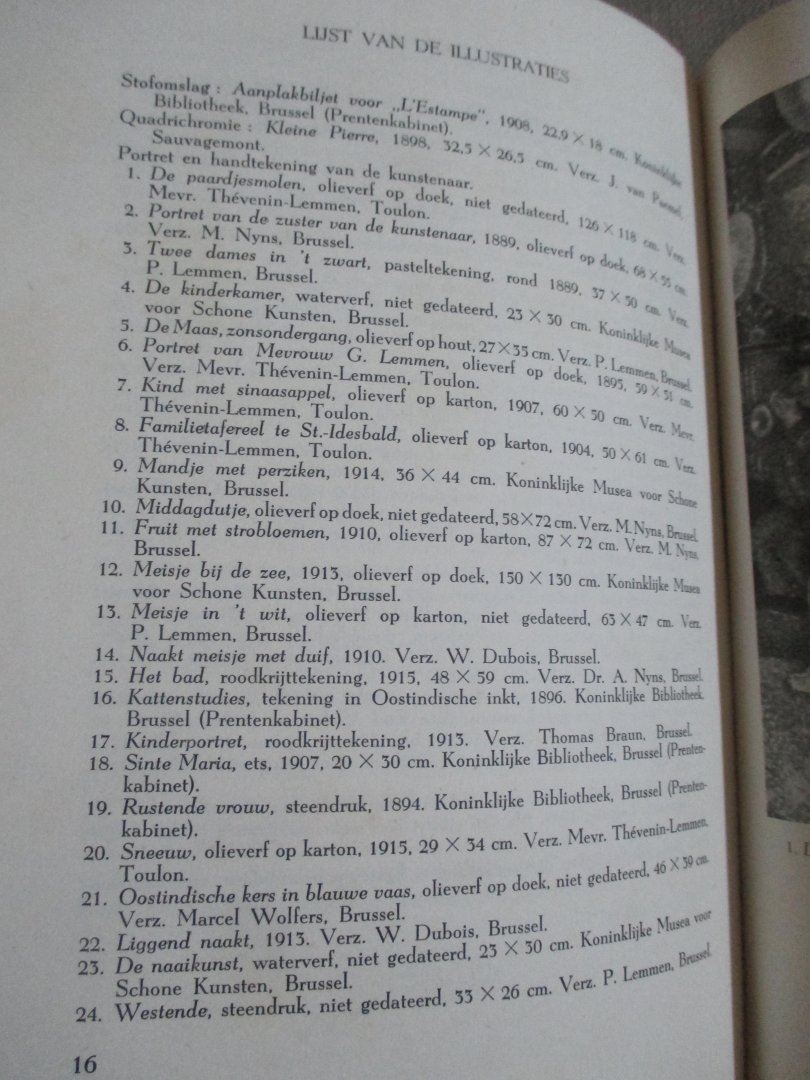 LIJST VAN DE ILLUSTRATIES
Stofomslag : Aanplakbiljet voor „L'Estampe", 1908, 22,9 × 18 cm. Koninklijke
Bibliotheek, Brussel (Prentenkabinet).
Quadrichromie : Kleine Pierre, 1898, 32,5 × 26,5 cm. Verz. J. van
Sauvagemont.
Portret en handtekening van de kunstenaar.
1. De paardjesmolen, olieverf op doek, niet gedateerd, 126 × 118 cm. Verz.
Mevr. Thévenin-Lemmen, Toulon.
2. Portret van de zuster van de kunstenaar, 1889, olieverf op doek, 68 × 55 cm.
Verz. M. Nyns, Brussel.
3. Twee dames in 't zwart, pasteltekening, rond 1889, 37 × 50 cm. Verz.
P. Lemmen, Brussel.
4. De kinderkamer, waterverf, niet gedateerd, 23 × 30 cm. Koninklijke Musea
voor Schone Kunsten, Brussel.
5. De Maas, zonsondergang, olieverf op hout, 27 × 35 cm. Verz. P. Lemmen, Brussel.
6. Portret van Mevrouw G. Lemmen, olieverf op doek, 1895, 59 × 51 cm.
Verz. Mevr. Thévenin-Lemmen, Toulon.
7. Kind met sinaasappel, olieverf op karton, 1907, 60 × 50 cm. Verz. Mevr.
Thévenin-Lemmen, Toulon.
8. Familietafereel te St.-Idesbald, olieverf op karton, 1904, 50 × 61 cm. Verz.
Thévenin-Lemmen, Toulon.
9. Mandje met perziken, 1914, 36 × 44 cm. Koninklijke Musea voor Schone
Kunsten, Brussel.
10. Middagdutje, olieverf op doek, niet gedateerd, 58 × 72 cm. Verz. M. Nyns, Brussel.
11. Fruit met strobloemen, 1910, olieverf op karton, 87 × 72 cm. Verz. M. Nyns,
Brussel.
12. Meisje bij de zee, 1913, olieverf op doek, 150 × 130 cm. Koninklijke Musea
voor Schone Kunsten, Brussel.
13. Meisje in 't wit, olieverf op karton, niet gedateerd, 63 × 47 cm. Verz.
P. Lemmen, Brussel.
14. Naakt meisje met duif, 1910. Verz. W. Dubois, Brussel.
15. Het bad, roodkrijttekening, 1915, 48 × 59 cm. Verz. Dr. A. Nyns, Brussel.
16. Kattenstudies, tekening in Oostindische inkt, 1896. Koninklijke Bibliotheek,
Brussel (Prentenkabinet).
17. Kinderportret, roodkrijttekening, 1913. Verz. Thomas Braun, Brussel.
18. Sinte Maria, ets, 1907, 20 × 30 cm. Koninklijke Bibliotheek, Brussel (Prenten-
kabinet).
19. Rustende vrouw, steendruk, 1894. Koninklijke Bibliotheek, Brussel (Prenten-
kabinet).
20. Sneeuw, olieverf op karton, 1915, 29 × 34 cm. Verz. Mevr. Thévenin-Lemmen,
Toulon.
21. Oostindische kers in blauwe vaas, olieverf op doek, niet gedateerd, 46 × 39 cm.
Verz. Marcel Wolfers, Brussel.
22. Liggend naakt, 1913. Verz. W. Dubois, Brussel.
23. De naaikunst, waterverf, niet gedateerd, 23 × 30 cm. Koninklijke Musea voor
Schone Kunsten, Brussel.
24. Westende, steendruk, niet gedateerd, 33 × 26 cm. Verz. P. Lemmen, Brussel.
16
1.